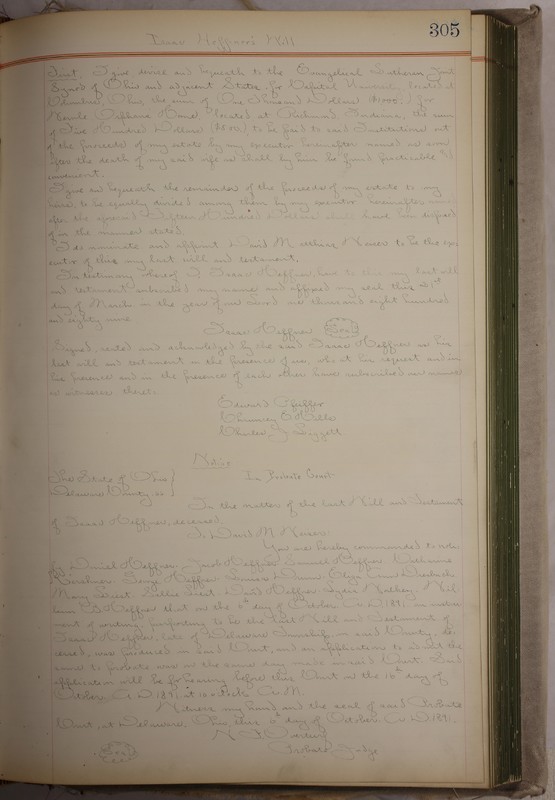 305
Isaac Heffner's Will
First. I give devise and bequeath to the Evangelical Lutheran Joint
Synod of Ohio and adjacent States, for Capital University, located at
Columbus, Ohio, the sum of One Thousand Dollars ($1000); for
Orphans Home, located at Richmond, Indiana, the sum
of Five Hundred Dollars ($500) to be paid to said Institutions out
of the proceeds of my estate by my executor hereinafter named as soon
after the death of my said wife as shall by him be found practicable &
convenient.
I give and bequeath the remainder of the proceeds of my estate to my
heirs, to be equally divided among them by my executor hereinafter named
after the aforesaid Fifteen Hundred Dollars shall have been disposed
of in the manner stated.
I do nominate and appoint David M. to be the exe-
cutor of this my last will and testament.
In testimony whereof I, Isaac Heffner have to this my last will
and testament subscribed my name and affixed my seal this 21st
day of March in the year of our Lord one thousand eight hundred
and eighty nine
Isaac Heffner (Seal)
Signed, sealed and acknowledged by the said Isaac Heffner as his
last will and testament in the presence of us, who at his request and in
his presence and in the presence of each other have subscribed our names
as witnesses thereto.
Edward Pfeiffer
Chauncey C. Mills
Charles J. Liggett
Notice
The State of Ohio } In Probate Court
Delaware County, ss }
In the matter of the Last Will and Testament
of Isaac Heffner, deceased.
To David M.
You are hereby commanded to notify
Daniel Heffner, Jacob Heffner, Samuel Heffner, Catharine
George Heffner,
Mary David Heffner, Wil-
liam Heffner that on the 6th day of October A.D. 1891, an instru-
ment of writing, purporting to be the Last Will and Testament of
Isaac Heffner, late of Delaware Township, in said County, de-
ceased, was produced in said Court, and an application to admit the
same to probate was on the same day made in said Court. Said
application will be for hearing before this Court on the 10th day of
October A.D. 1891, at 10 o'clock A.M.
Witness my hand and the seal of said Probate
Court, at Delaware, Ohio this 6th day of October A.D. 1891.
(Seal)
Probate Judge